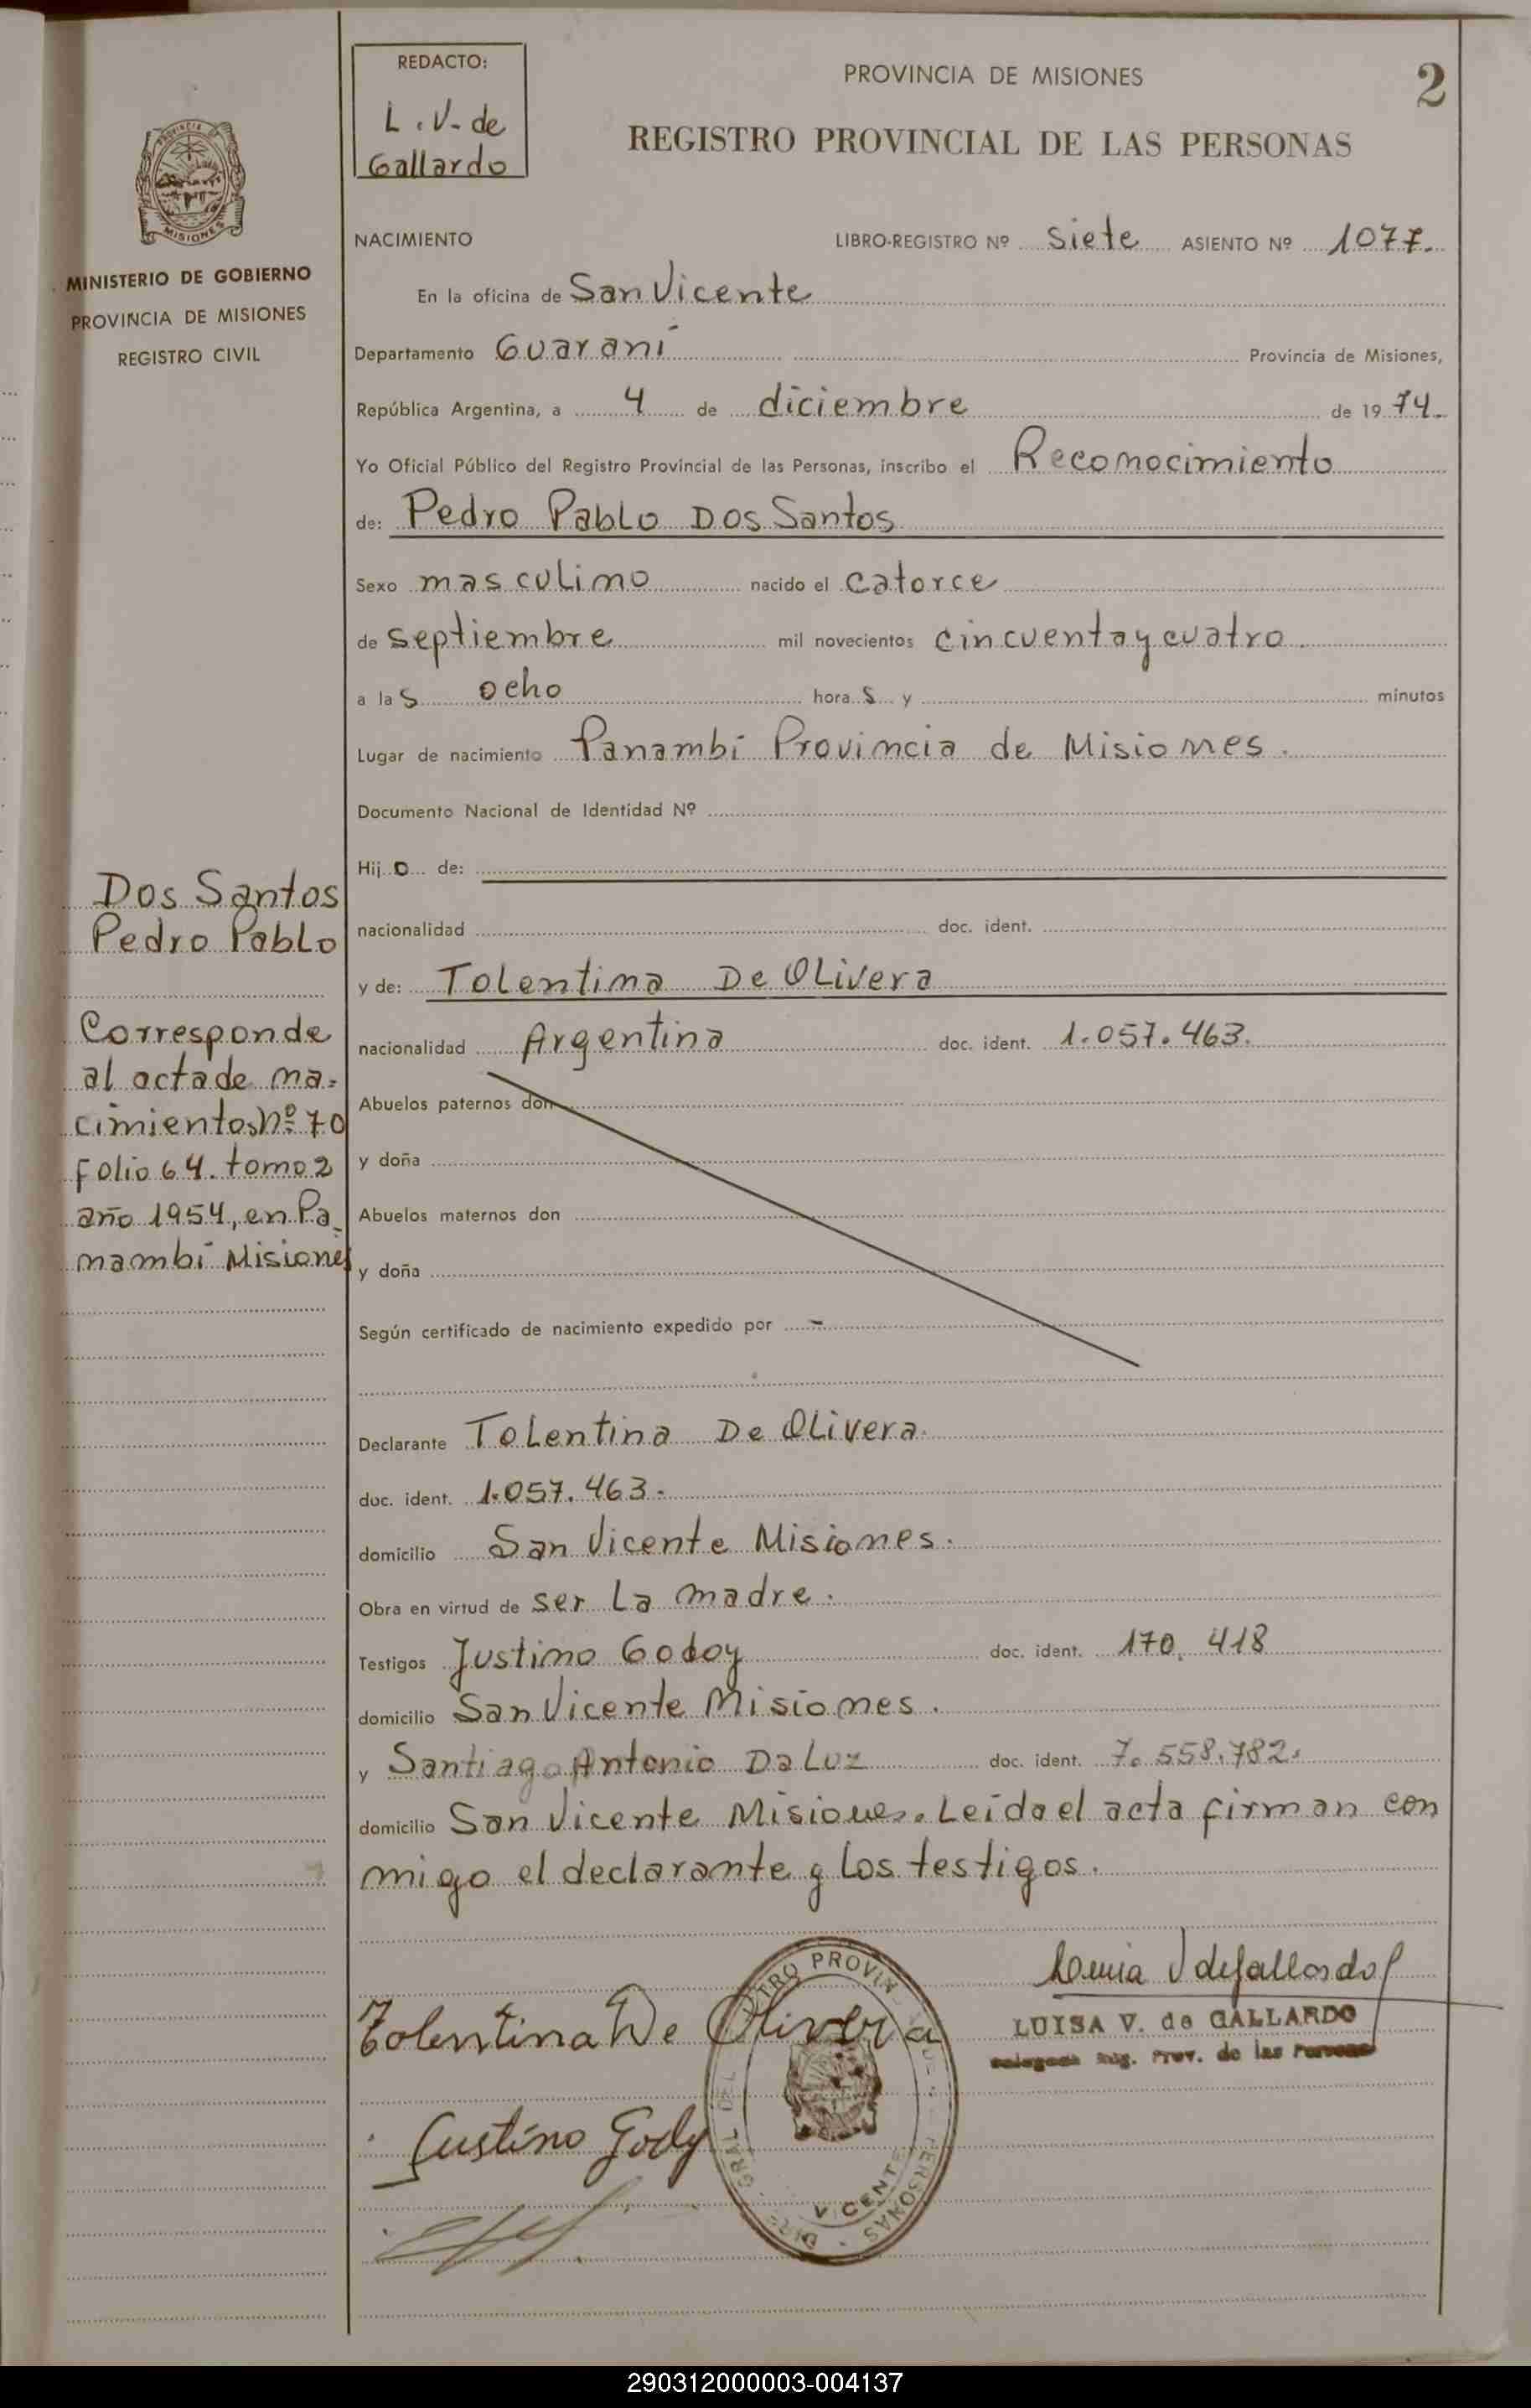 REDACTO:
L. V. de
Gallardo
PROVINCIA DE MISIONES
2
REGISTRO PROVINCIAL DE LAS PERSONAS
PROVINCIA DE
MISIONES
MINISTERIO DE GOBIERNO
PROVINCIA DE MISIONES
REGISTRO CIVIL
NACIMIENTO LIBRO-REGISTRO Nº siete ASIENTO Nº 1077.
En la oficina de San Vicente
Departamento Guaraní Provincia de Misiones,
República Argentina, a 4 de diciembre de 1974.
Yo Oficial Público del Registro Provincial de las Personas, inscribo el Reconocimiento
de: Pedro Pablo Dos Santos
Sexo masculino nacido el catorce
de septiembre mil novecientos cincuenta y cuatro.
a las ocho horas y minutos
Lugar de nacimiento Panambí Provincia de Misiones.
Documento Nacional de Identidad Nº
Hijo de:
nacionalidad doc. ident.
y de: Tolentina De Olivera
nacionalidad Argentina doc. ident. 1.057.463.
Abuelos paternos don
y doña
Abuelos maternos don
y doña
Según certificado de nacimiento expedido por -
Declarante Tolentina De Olivera.
doc. ident. 1.057.463.
domicilio San Vicente Misiones.
Obra en virtud de ser la madre.
Testigos Justino Godoy doc. ident. 170.418
domicilio San Vicente Misiones.
y Santiago Antonio Da Luz doc. ident. 7.558.782.
domicilio San Vicente Misiones. Leída el acta firman con
migo el declarante y los testigos.
Dos Santos
Pedro Pablo
Corresponde
al acta de na-
cimientos Nº 70
folio 64. tomo 2
año 1954, en Pa-
nambí Misiones
Tolentina De Olivera
LUISA V. de GALLARDO
Delegada Reg. Prov. de las Personas
Justino Godoy
PROVIN
PERSONAS
VICENTE
290312000003-004137